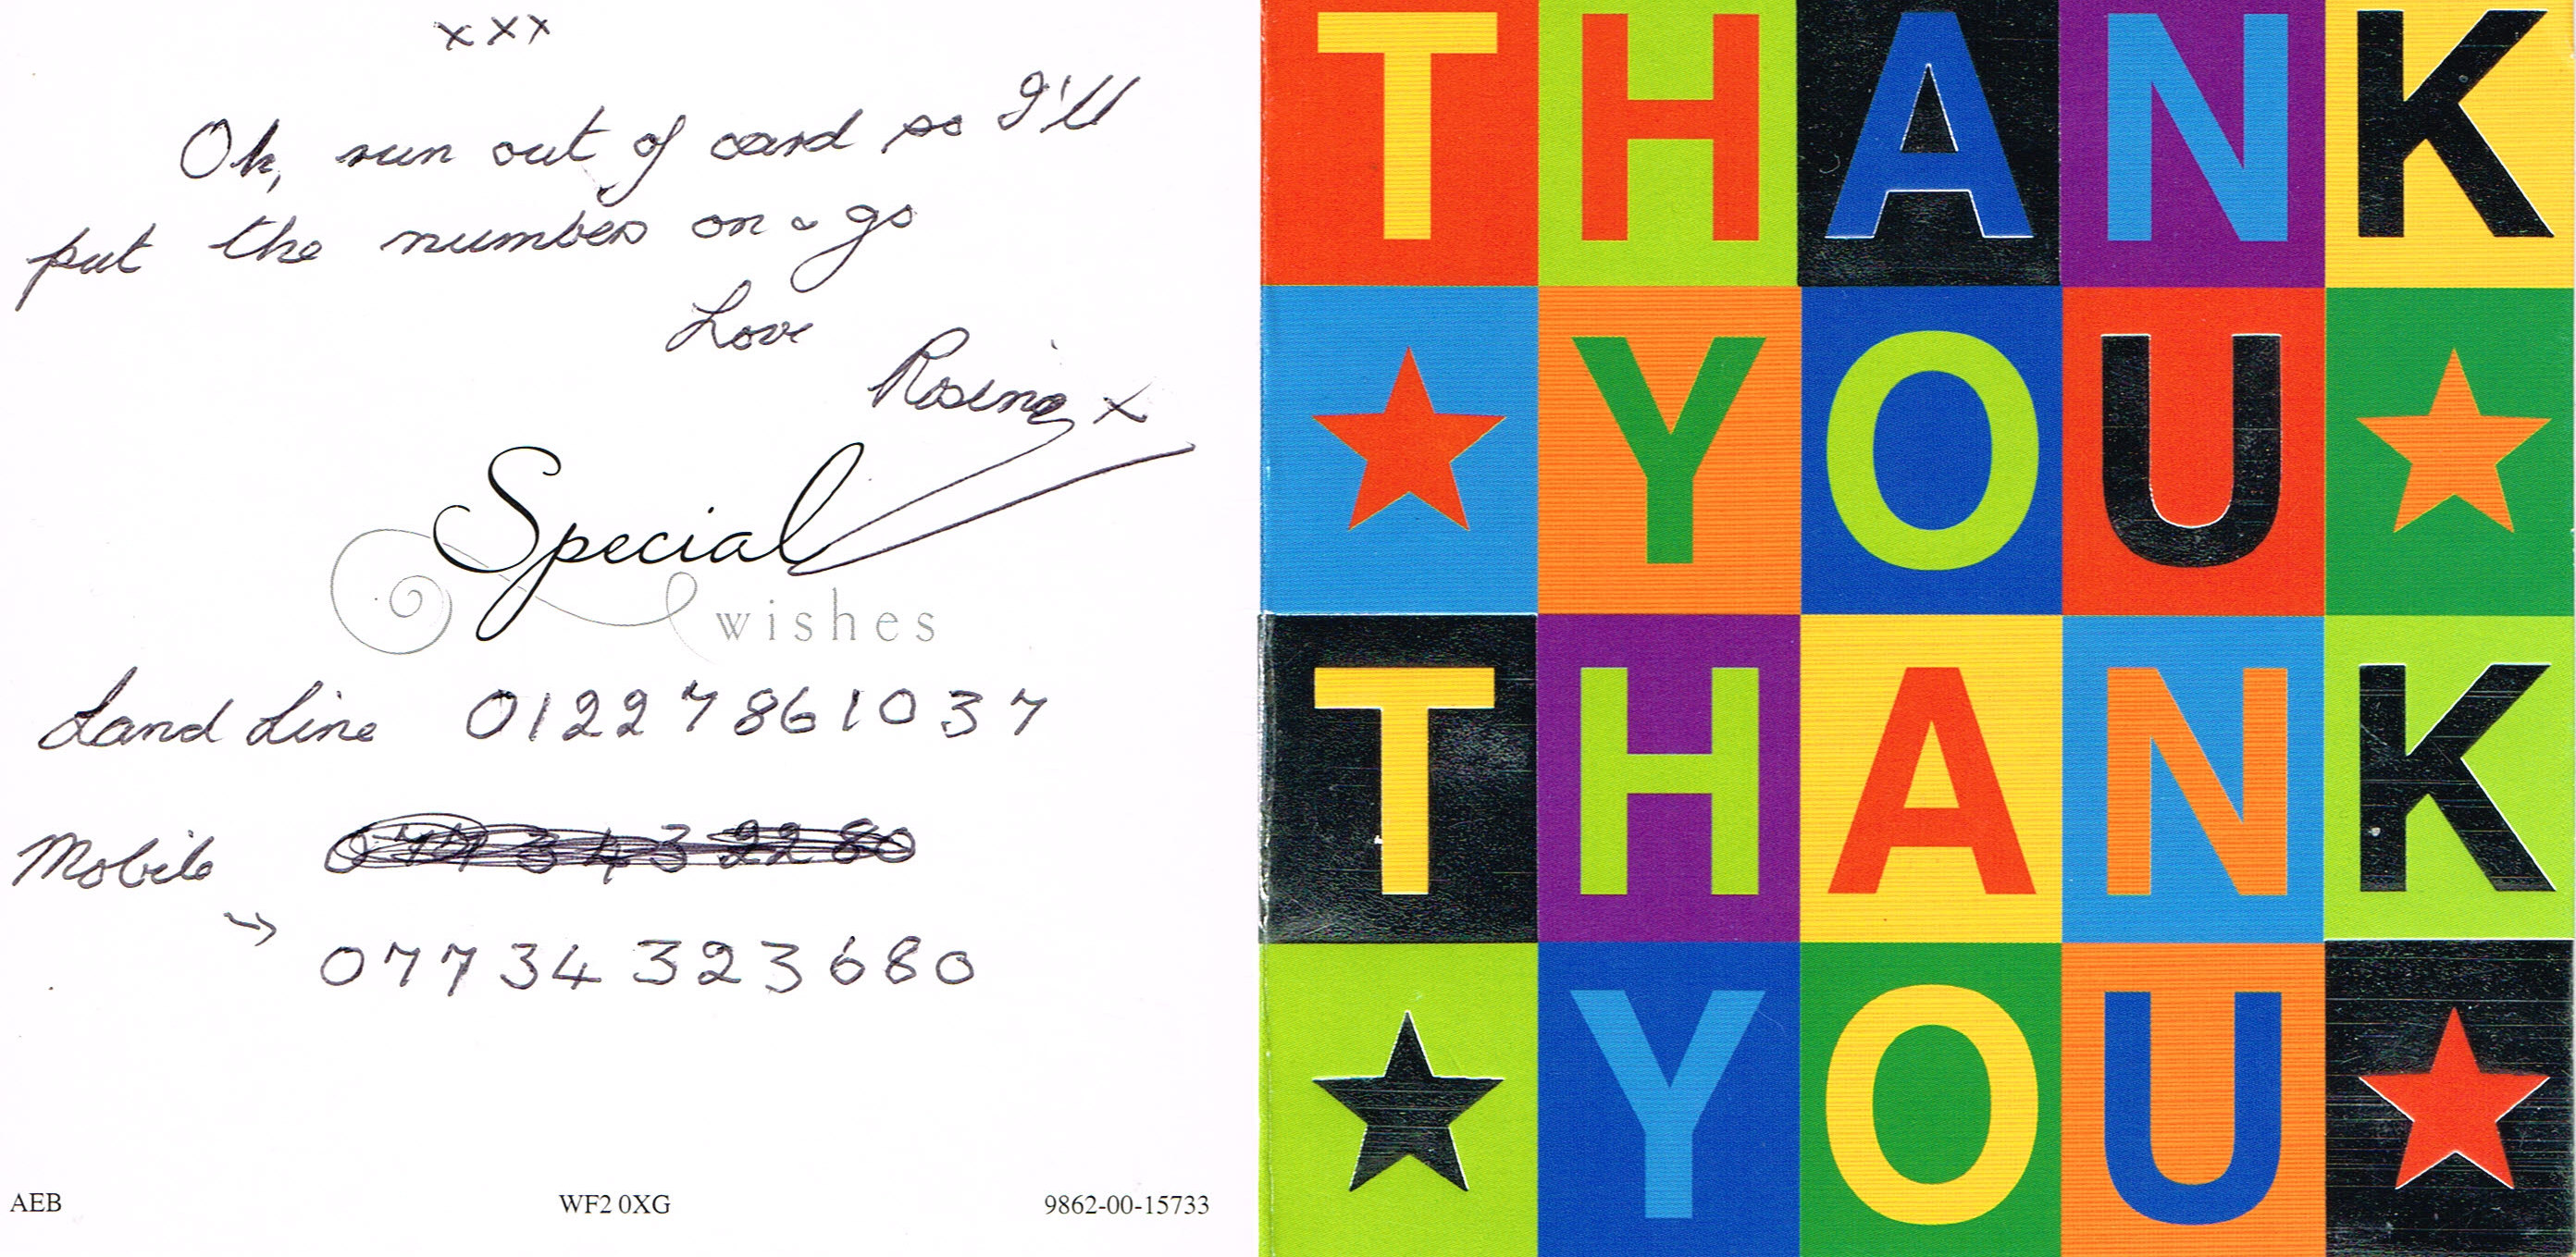 xxx
Oh, run out of card so I'll
put the numbers on & go
Love
Rosina x
Special
wishes
Land Line 01227861037
Mobile
→ 07734 323680
AEB
WF2 0XG
9862-00-15733
THANK
YOU
THANK
YOU